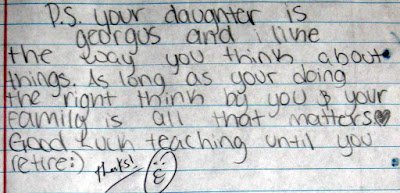 P.S. your daughter is
georgus and i like
the way you think about
things. As long as your doing
the right think by you & your
family is all that matters♥
Good Luck teaching until you
retire:)
thanks!